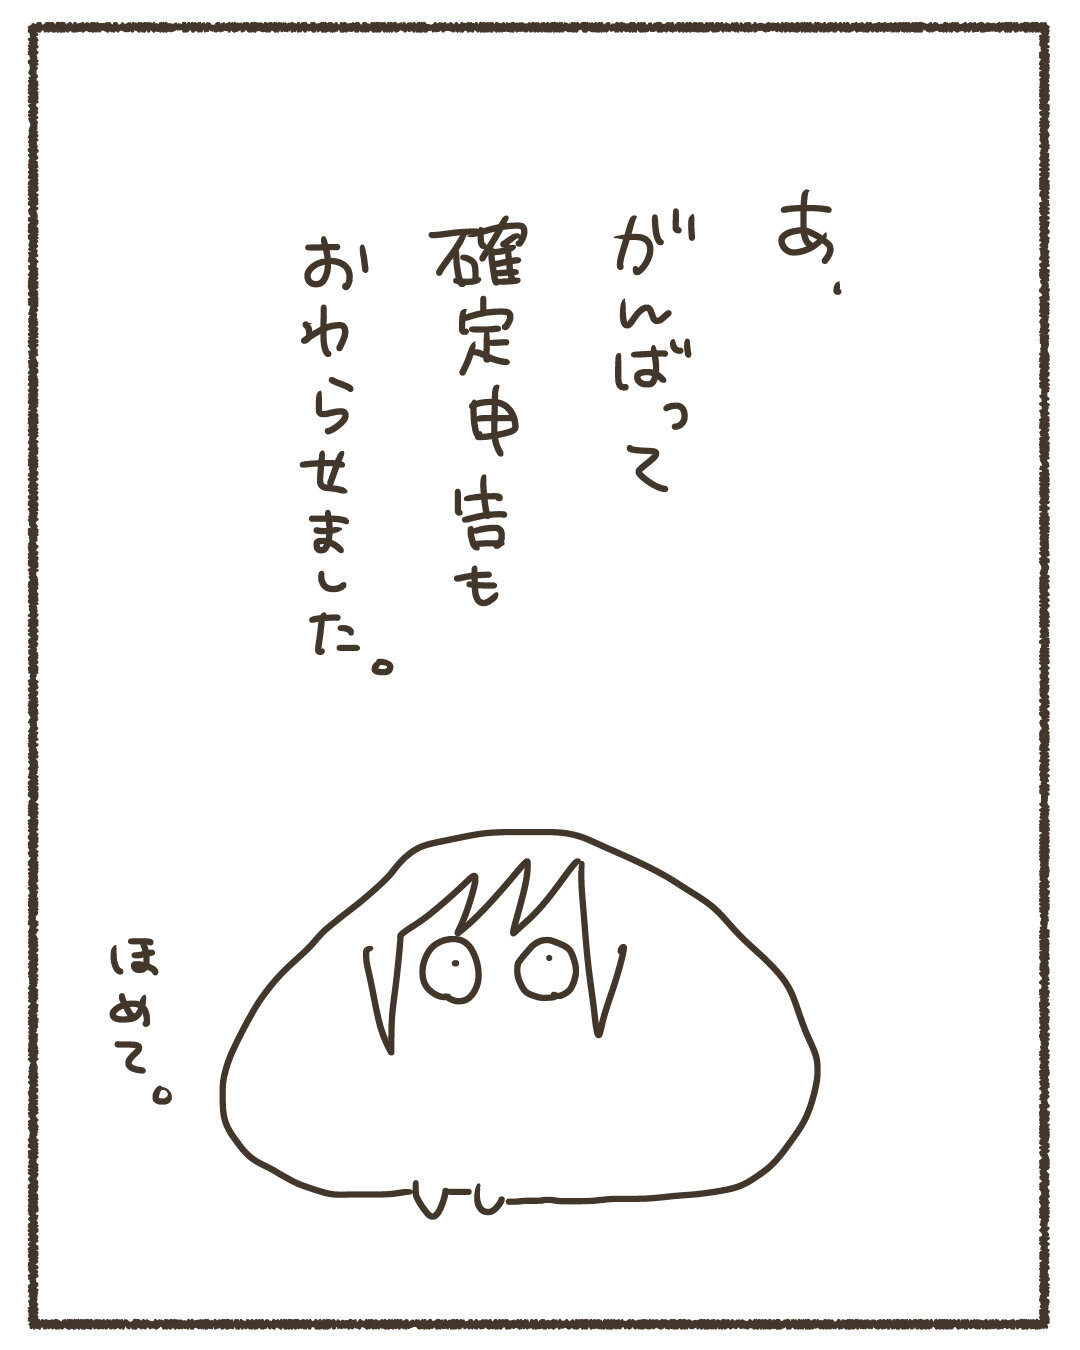 あ、
がんばって
確定申告も
おわらせました。
ほめて。